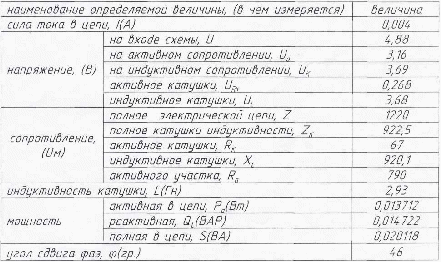 наименование определяемой величины, (в чем измеряется) величина
сила тока в цепи, I(А) 0,004
напряжение, (В)
на входе схемы, U 4,88
на активном сопротивлении, Uа 3,16
на индуктивном сопротивлении, Uк 3,69
активное катушки, Uак 0,268
индуктивное катушки, UL 3,68
сопротивление, (Ом)
полное электрической цепи, Z 1220
полное катушки индуктивности, Zк 922,5
активное катушки, Rк 67
индуктивное катушки, XL 920,1
активного участка, Rа 790
индуктивность катушки, L(Гн) 2,93
мощность
активная в цепи, Pа(Вт) 0,013712
реактивная, QL(ВАР) 0,014722
полная в цепи, S(ВА) 0,020118
угол сдвига фаз, φ(гр.) 46